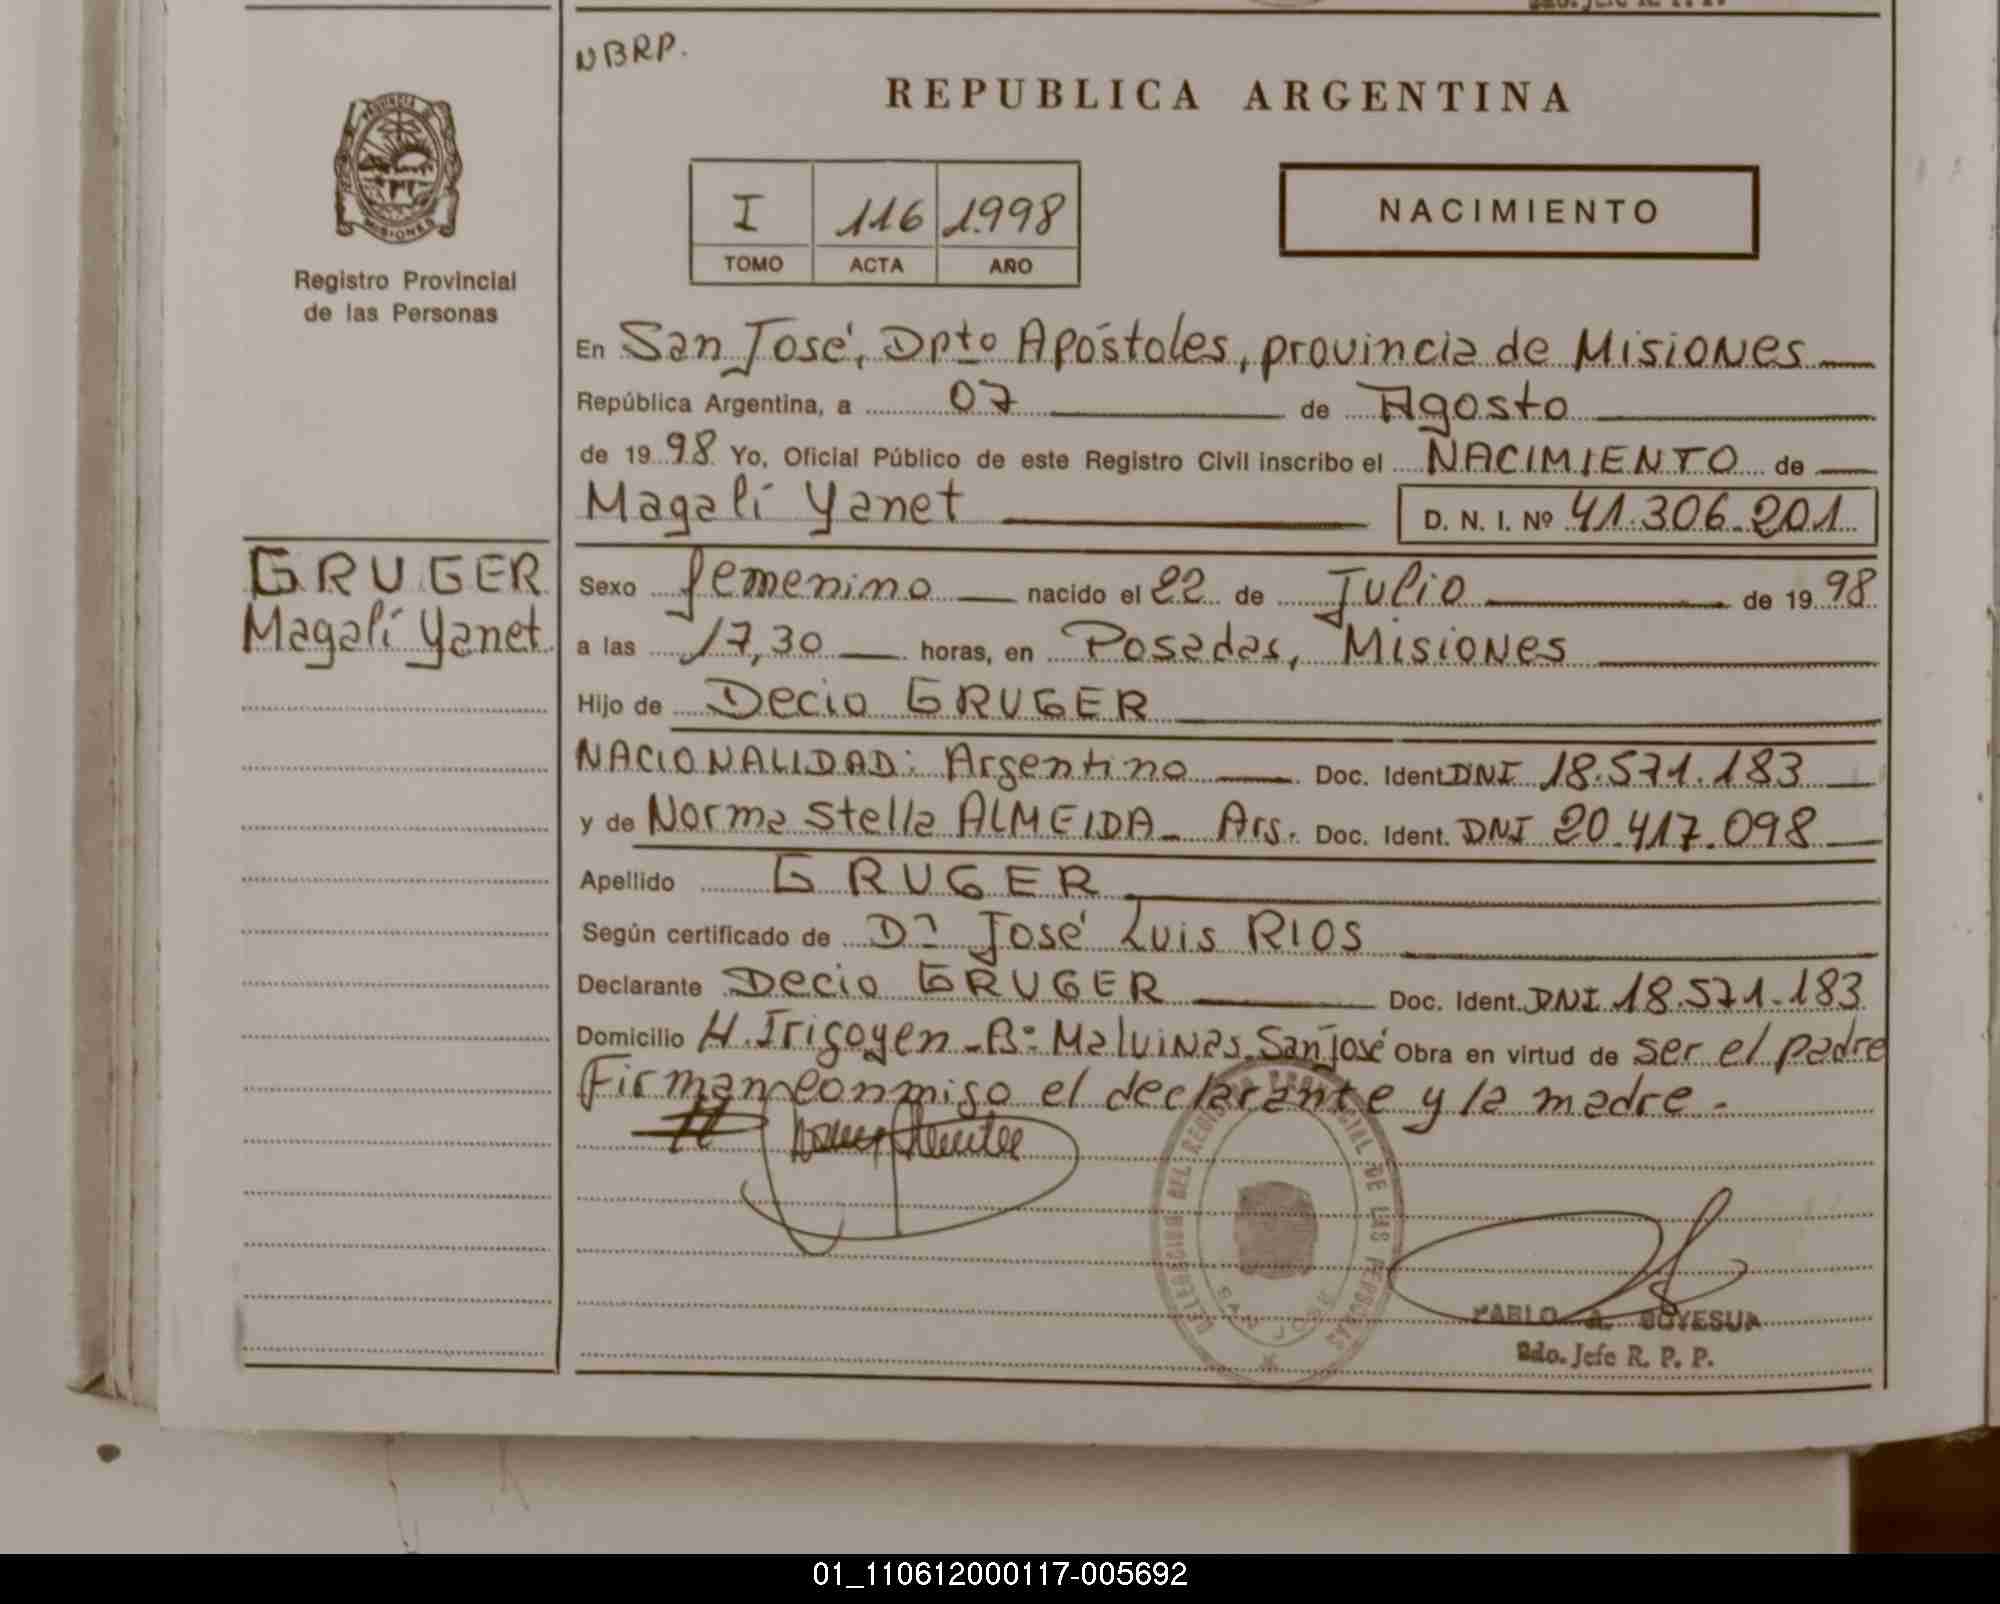 NBRP.
REPUBLICA ARGENTINA
PROVINCIA DE
MISIONES
Registro Provincial
de las Personas
I 116 1998
TOMO ACTA AÑO
NACIMIENTO
En San José, Dpto Apóstoles, provincia de Misiones
República Argentina, a 07 de Agosto
de 1998 Yo, Oficial Público de este Registro Civil inscribo el NACIMIENTO de
Magalí Yanet D. N. I. Nº 41.306.201
GRUGER
Magalí Yanet
Sexo femenino nacido el 22 de Julio de 1998
a las 17,30 horas, en Posadas, Misiones
Hijo de Decio GRUGER
NACIONALIDAD: Argentino Doc. Ident. DNI 18.571.183
y de Norma Stella ALMEIDA - Arg. Doc. Ident. DNI 20.417.098
Apellido GRUGER
Según certificado de Dr José Luis RIOS
Declarante Decio GRUGER Doc. Ident. DNI 18.571.183
Domicilio H. Irigoyen - Bº Malvinas. San José Obra en virtud de ser el padre
Firman conmigo el declarante y la madre.
DELEGACION DEL REGISTRO PROVINCIAL DE LAS PERSONAS
SAN JOSE
PABLO A.
2do. Jefe R. P. P.
01_110612000117-005692